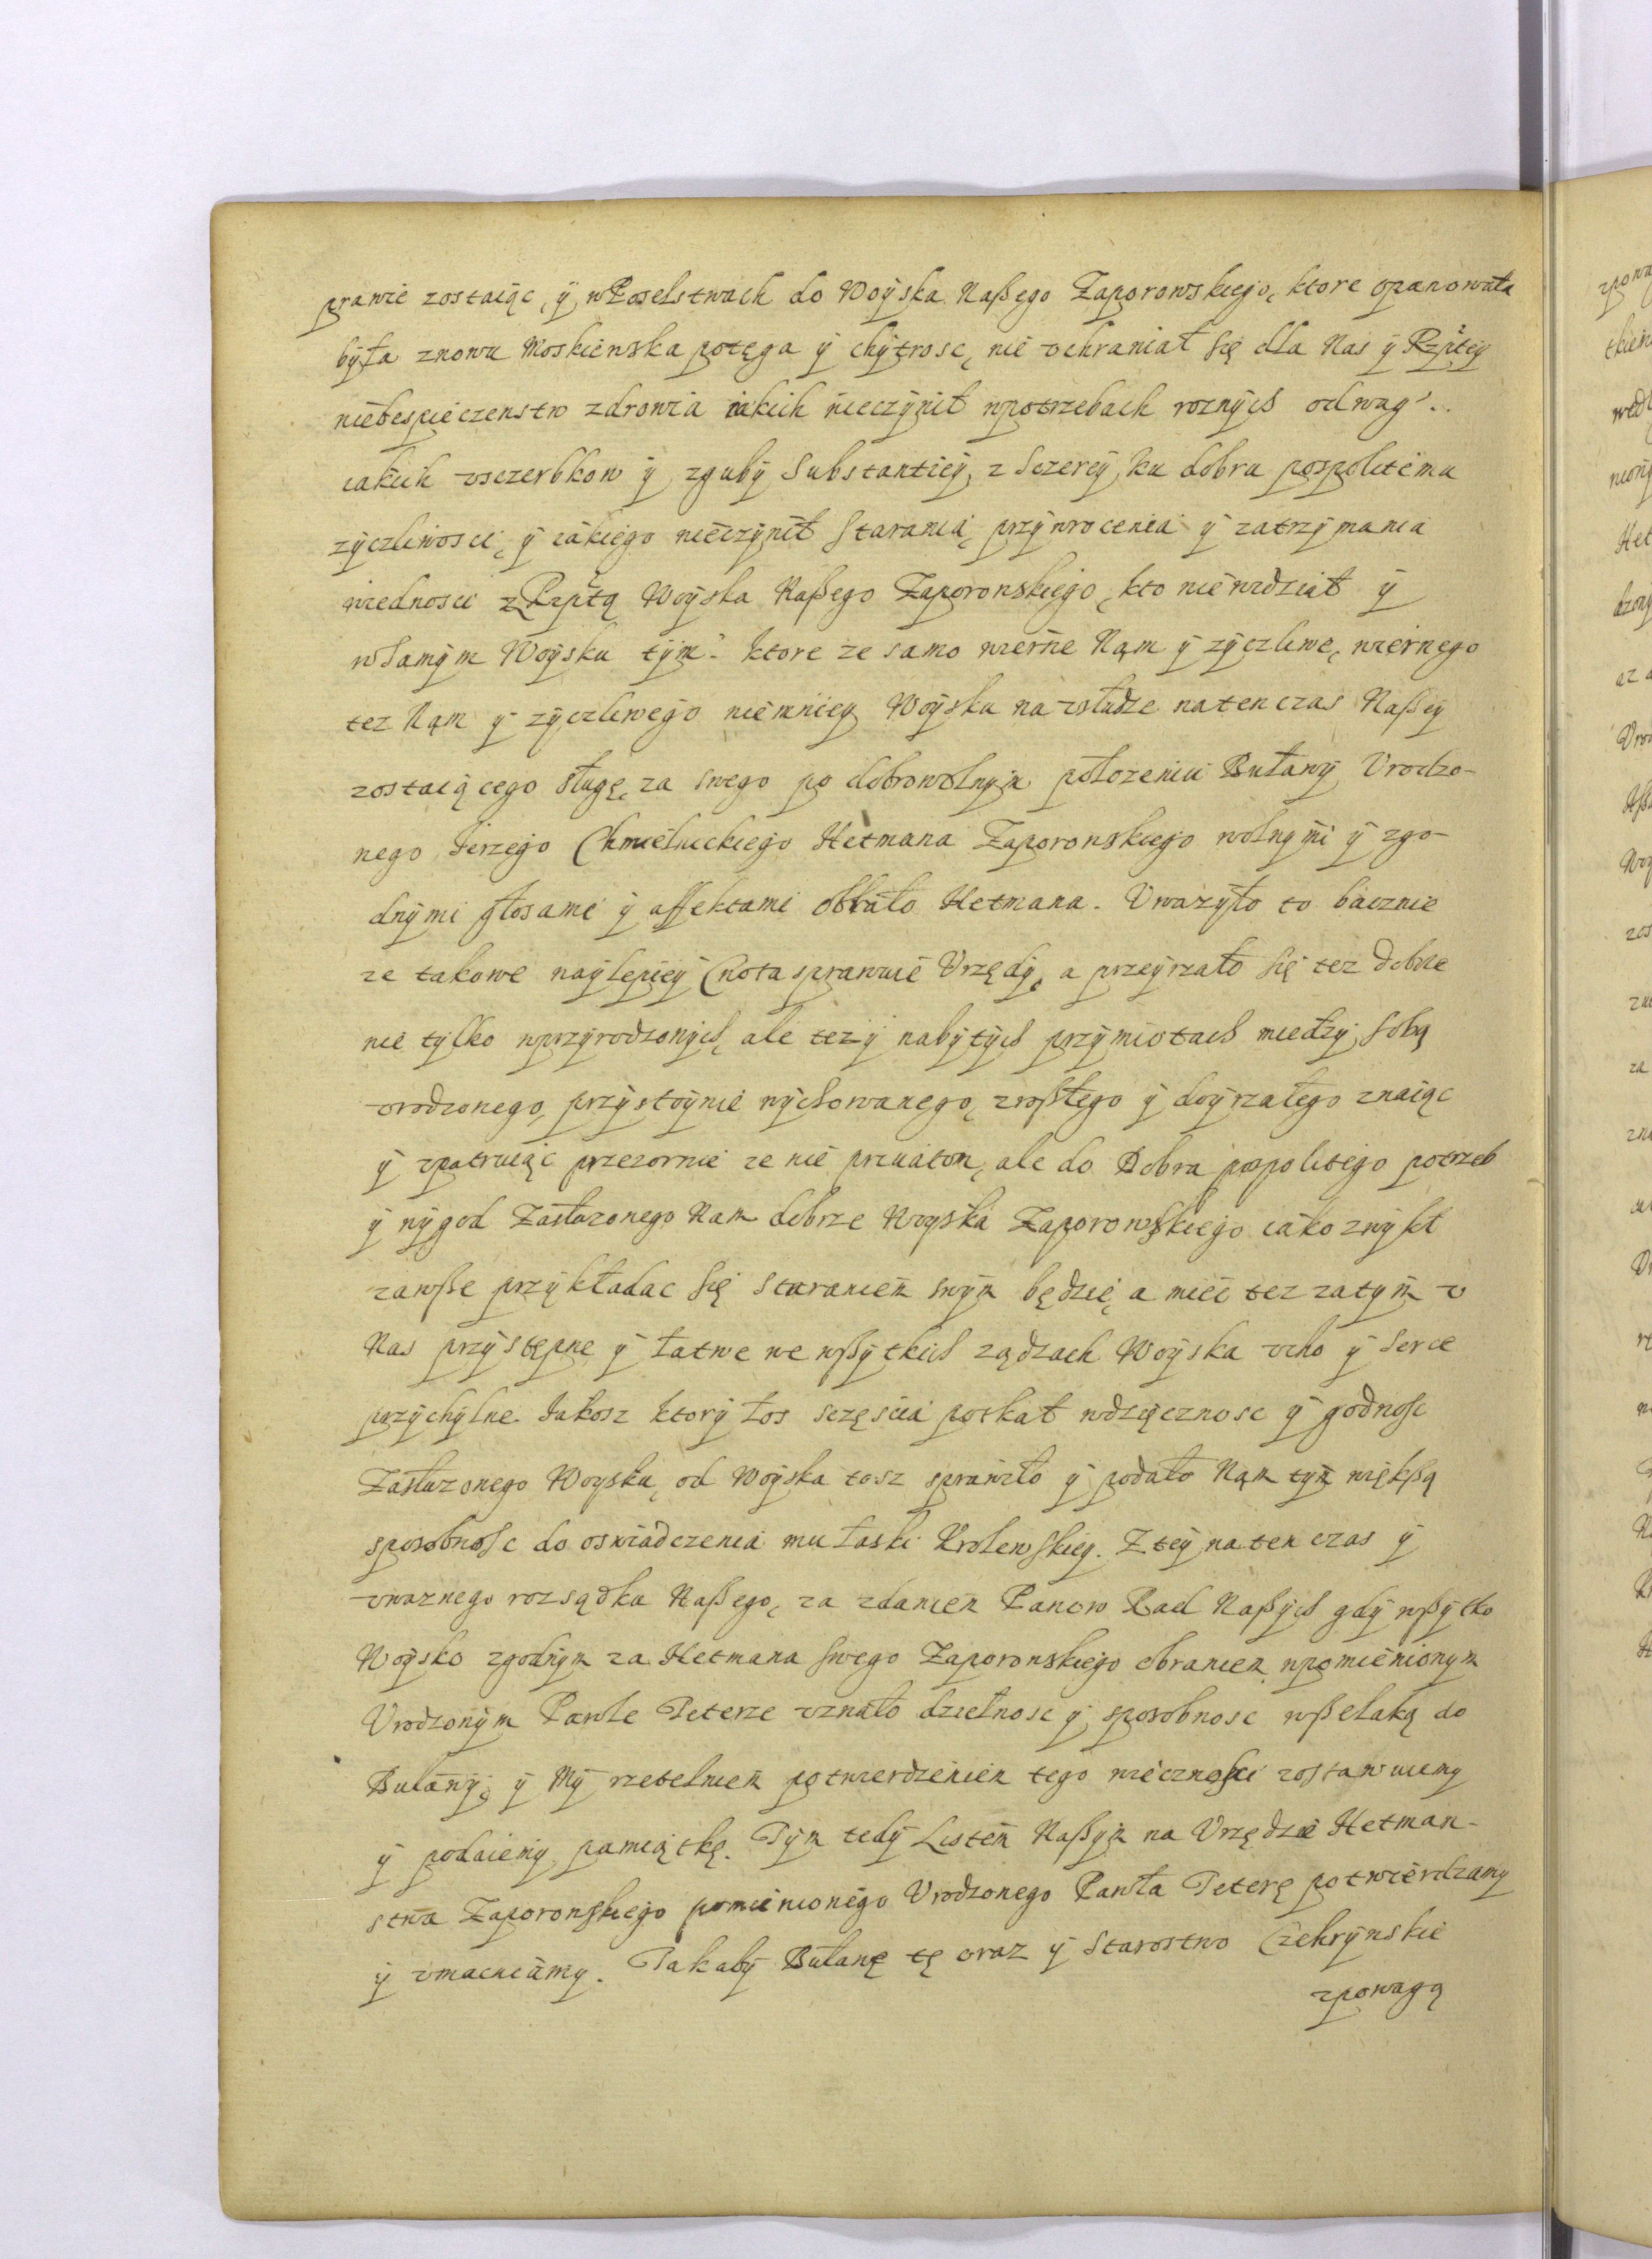 prawie zostaiąc, ÿ wPoselstwach do Woÿska Naßego Zaporowskiego, ktore opanowała
bÿła znowu Moskiewska potęga ÿ chÿtrosc, nie vchraniał się dla Nas ÿ Rzptey
niebespieczenstw zdrowia iakich nieczÿnił wpotrzebach roznÿch odwag.
iakich vsczerbkow ÿ zgubÿ Substantieÿ, z Sczereÿ ku dobru pospolitemu
zÿczliwosci, ÿ iakiego nieczÿnił Starania, przÿwrocenia ÿ zatrzÿmania
wiednosci zRzptą Woÿska Naßego Zaporowskiego, kto niewidział ÿ
wSamÿm Woÿsku tÿm. ktore ze samo wierne Nąm ÿ zÿczliwe, wiernego
tez Nąm ÿ zÿczliwego niemnieÿ Woÿsku na vsłudze natenczas Naßeÿ
zostaiącego sługę, za swego po dobrowolnÿm położeniu Buławÿ Vrodzo-
nego Jerzego Chmielnickiego Hetmana Zaporowskiego wolnÿmi ÿ zgo-
dnÿmi głosami ÿ affektami obrało Hetmana. Vwazÿło to bacznie
ze takowe naÿlepieÿ Cnota sprawuie Vrzędÿ, a przeÿrzało się tez dobrze
nie tÿlko wprzÿrodzonÿch, ale tez ÿ nabÿtÿch przÿmiotach miedzÿ Sobą
vrodzonego, przÿstoÿnie wÿchowanego, zroßłego ÿ doÿrzałego znaiąc
ÿ vpatruiąc przezornie ze nie priuatom, ale do Dobra pospolitego potrzeb
ÿ wÿgod Zasłuzonego Nam dobrze Woyska Zaporowskiego iako zwÿkł
zawße przÿkładac Się Staraniem swÿm będzie, a miec tez zatÿm v
Nas przÿstępne ÿ łatwe we wßÿtkich ządzach Woÿska vcho ÿ Serce
przÿchÿlne. Jakosz ktorÿ los sczęscia potkał wdzięcznosc ÿ godnosc
Zasłuzonego Woysku, od Woÿska tosz sprawiło ÿ podało Nąm tÿm większą
sposobnosc do oswiadczenia mu łaski Krolewskieÿ. Z teÿ na ten czas ÿ
vwaznego rozsądku Naßego, za zdaniem Panow Rad Naßÿch gdÿ wßÿtko
Woÿsko zgodnÿm za Hetmana swego Zaporowskiego obraniem wpomienionym
Vrodzonÿm Pawle Teterze vznało dzielnosc ÿ sposobnosc wßelaką do
Buławÿ, ÿ Mÿ rzetelniem potwierdzeniem tego wiecznosci zostawuiemy
ÿ podaiemy pamiątkę. Tÿm tedÿ Listem Naßÿm na Vrzędzie Hetman-
stwa Zaporowskiego pomienionego Vrodzonego Pawła Teterę potwierdzamy
ÿ vmacniamy. Takabÿ Buławę tę oraz ÿ Starostwo Czehrÿnskie
zpowagą